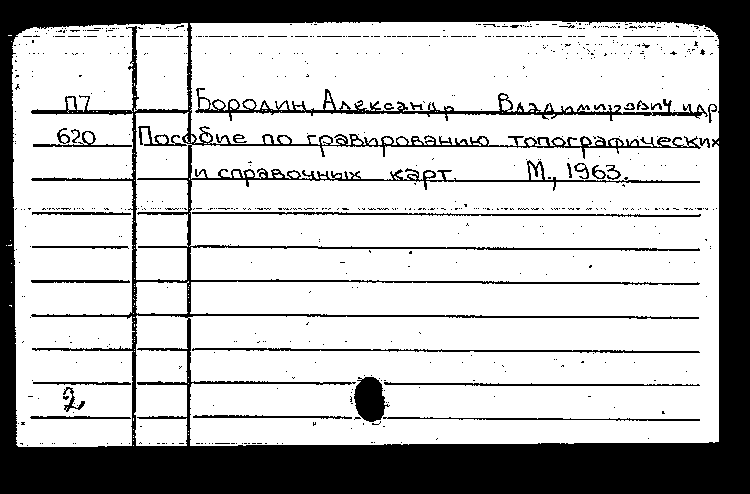 П7 Бородин, Александр Владимирович и др.
620 Пособие по гравированию топографических
и справочных карт. М., 1963.
2,